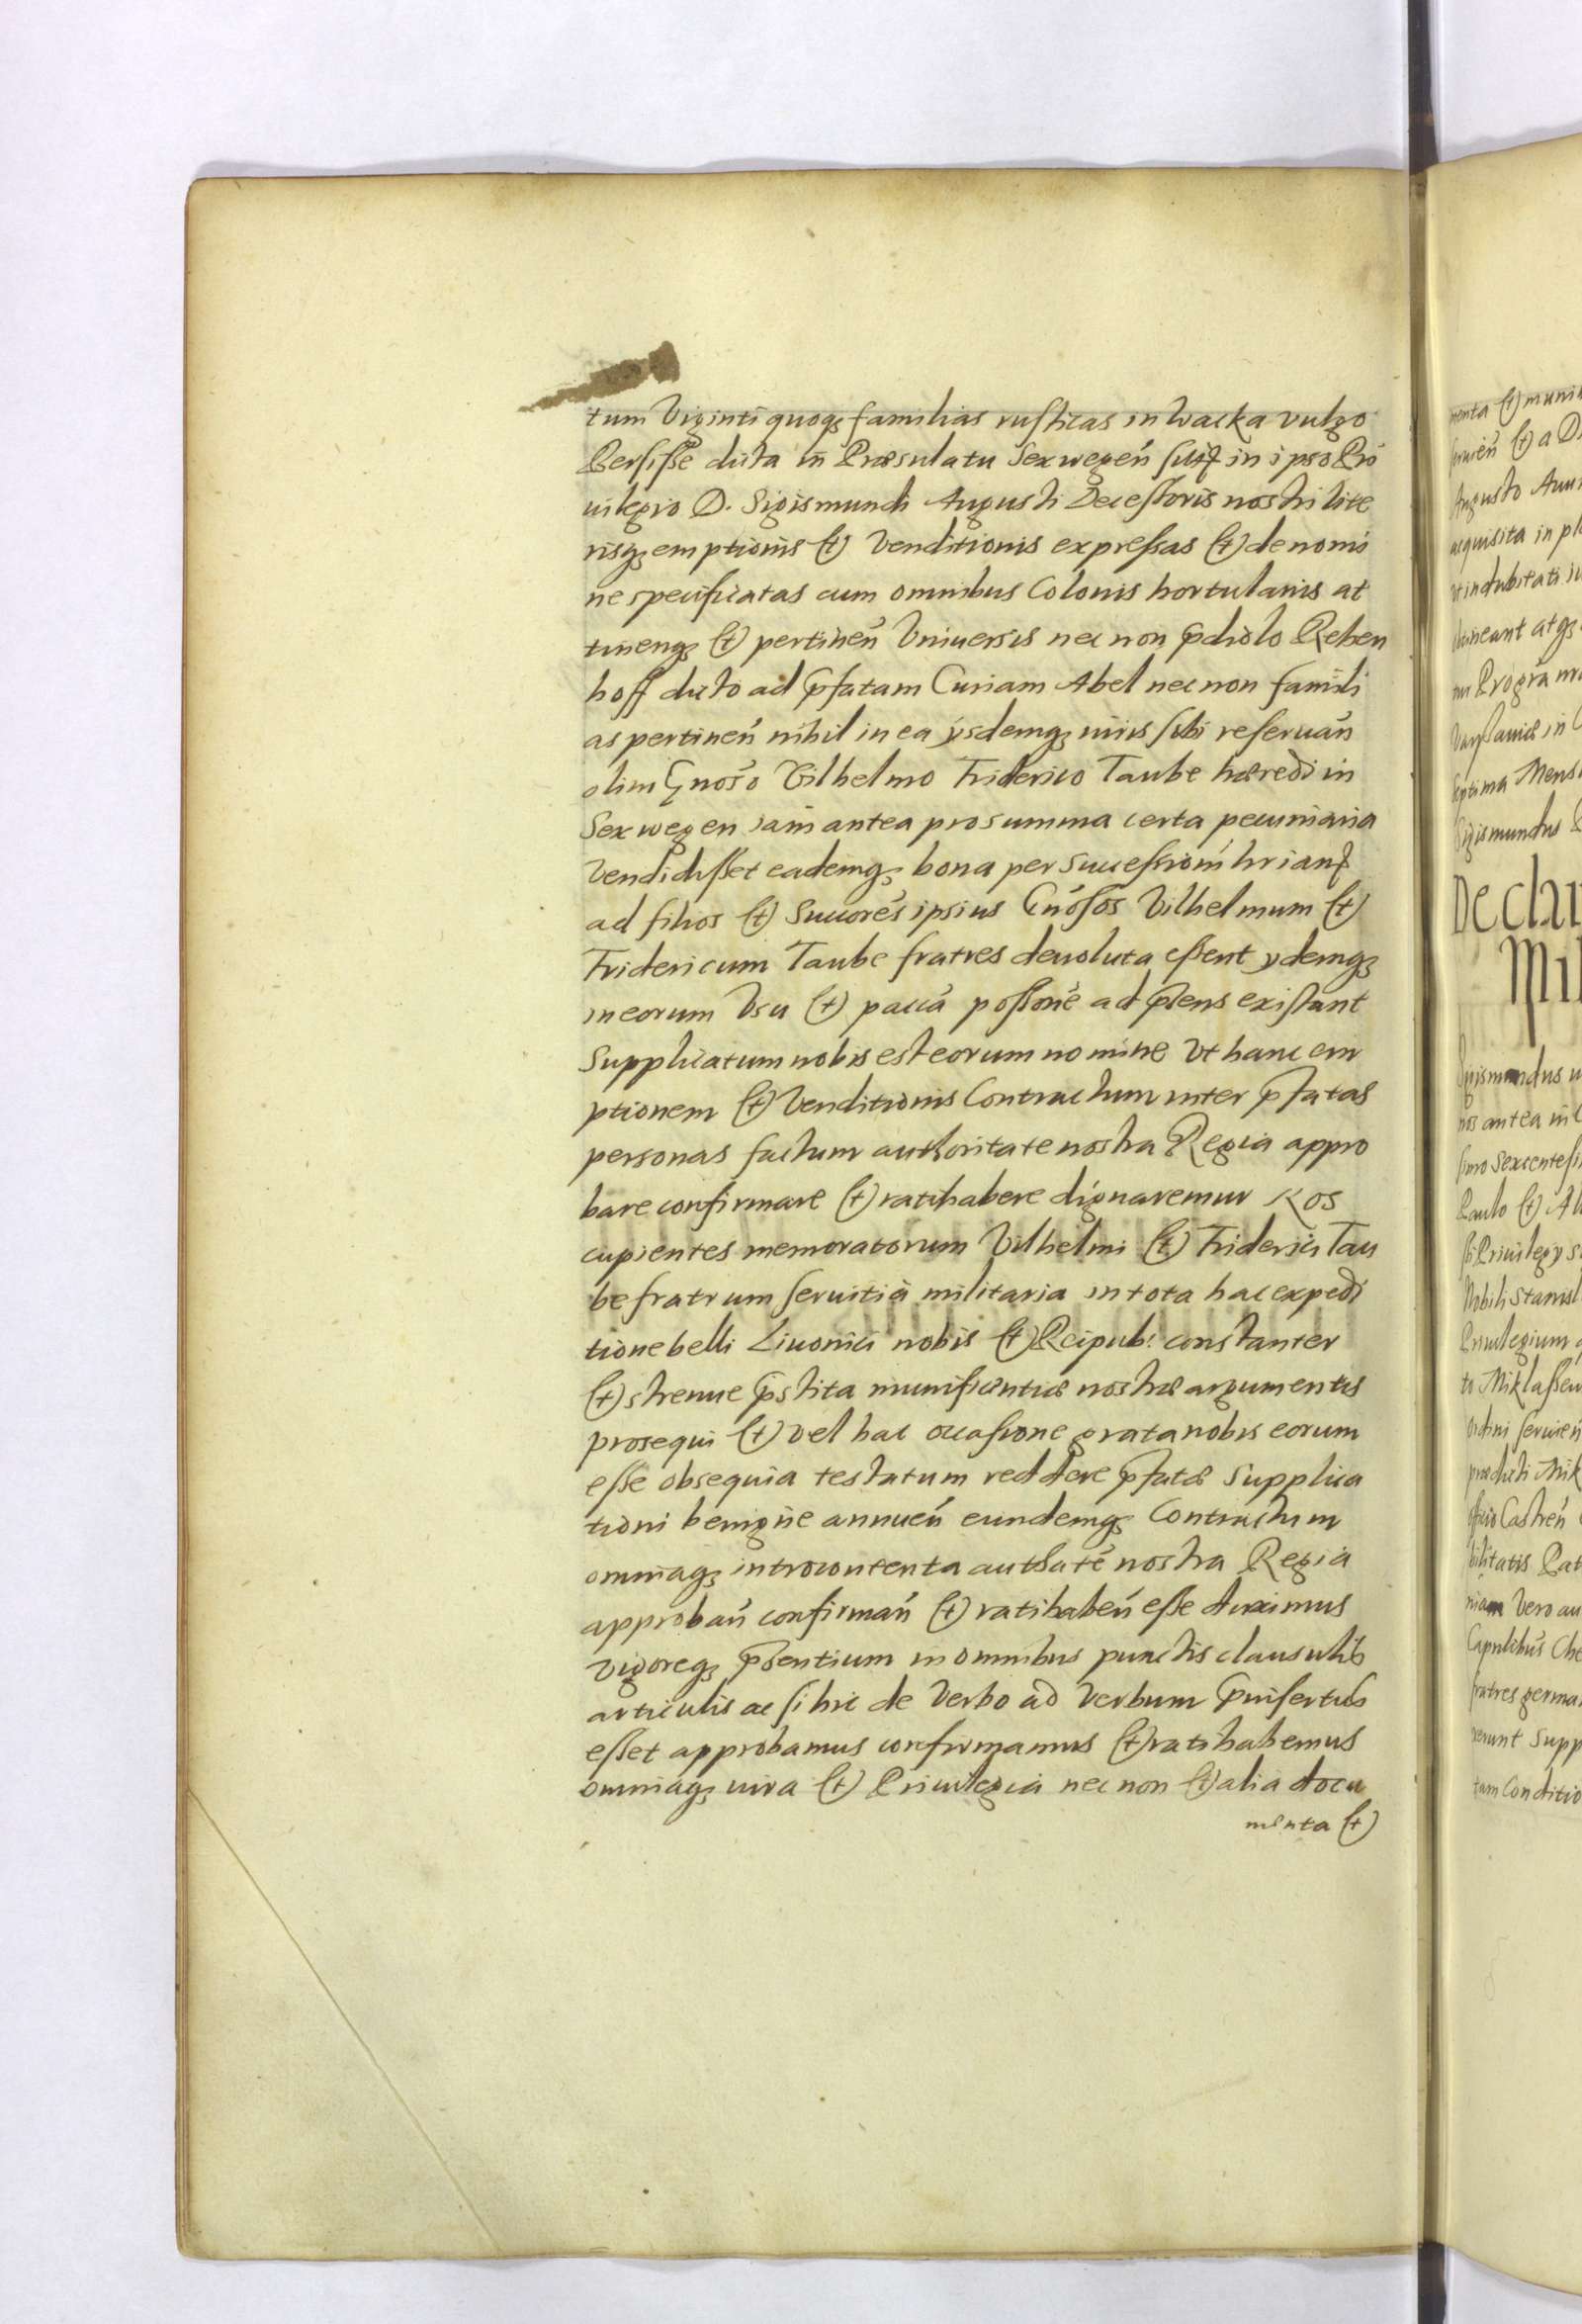 tum Viginti quoq₃ familias rusticas in Wacka vulgo
Persiße dicta in Præsulatu Sexwegen̄ in ipso Pri
uilegio D. Sigismundi Augusti Decessoris nostri lite
risq₃ emptionis (t) Venditionis expressas (t) de nomi
ne specificatas cum omnibus Colonis hortulanis at
tinenq₃ (t) pertinen̄ Vniuersis nec non p̄diolo Rehen
hoff dicto ad p̄fatam Curiam Abel nec non famili
as pertinen̄ nihil in ea ysdemq₃ iuris sibi reseruan̄
olim Gnoso Vilhelmo Friderico Taube hæredi in
Sexwegen iam antea pro summa certa pecuniaria
Vendidisset eademq₃ bona per successiom̄
ad filios (t) Succores̄ ipsius Gnosos Vilhelmum (t)
Fridericum Taube fratres deuoluta essent ydemq₃
in eorum Vsu (t) pacca possione ad p̄sens existant
Supplicatum nobis est eorum nomine Vt hanc em
ptionem (t) Venditionis Contractum inter p̄fatas
personas factum authoritate nostra Regia appro
bare confirmare (t) ratihabere dignaremur Nos
cupientes memoratorum Vilhelmi (t) Friderici Tau
be fratrum seruitia militaria in tota hac expedi
tione belli Liuonici nobis (t) Reipub: constanter
(t) strenue p̄stita munificentiæ nostræ argumentis
prosequi (t) vel hac occasione grata nobis eorum
esse obsequia testatum reddere p̄fatæ Supplica
tioni benigne annuen̄ eundemq₃ Contractum
omniaq₃ introcontenta authate̅ nostra Regia
approban̄ confirman̄ (t) ratihaben̄ esse duximus
vigoreq₃ p̄sentium in omnibus punctis clausulis
articulis ac si hic de Verbo ad Verbum p̄nisertus
esset approbamus confirmamus (t) ratihabemus
omniaq₃ iura (t) Priuilegia nec non (t) alia docu
menta (t)
menta (t) muni
(t) a D.
Augusto
acquisita in pl
vt indubitati
atq₃
Varsauiæ in
septima Mens
Sigismundus
Mil
Sigismundus
nos antea
simo Sexcentesi
Paulo (t) Al
Priuilegy
Nobili Stanisl
Priuilegium
to Miklassew
ordini seruien̄
prædicti Mik
Castren̄
Vero au
fratres germa
Supp
tam Conditio